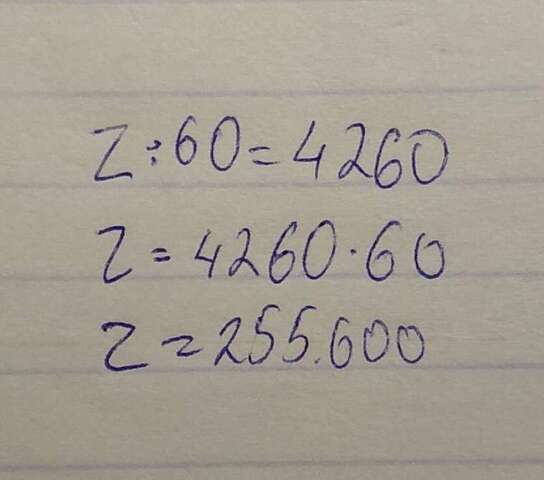 Z:60=4260
Z=4260·60
Z=255.600